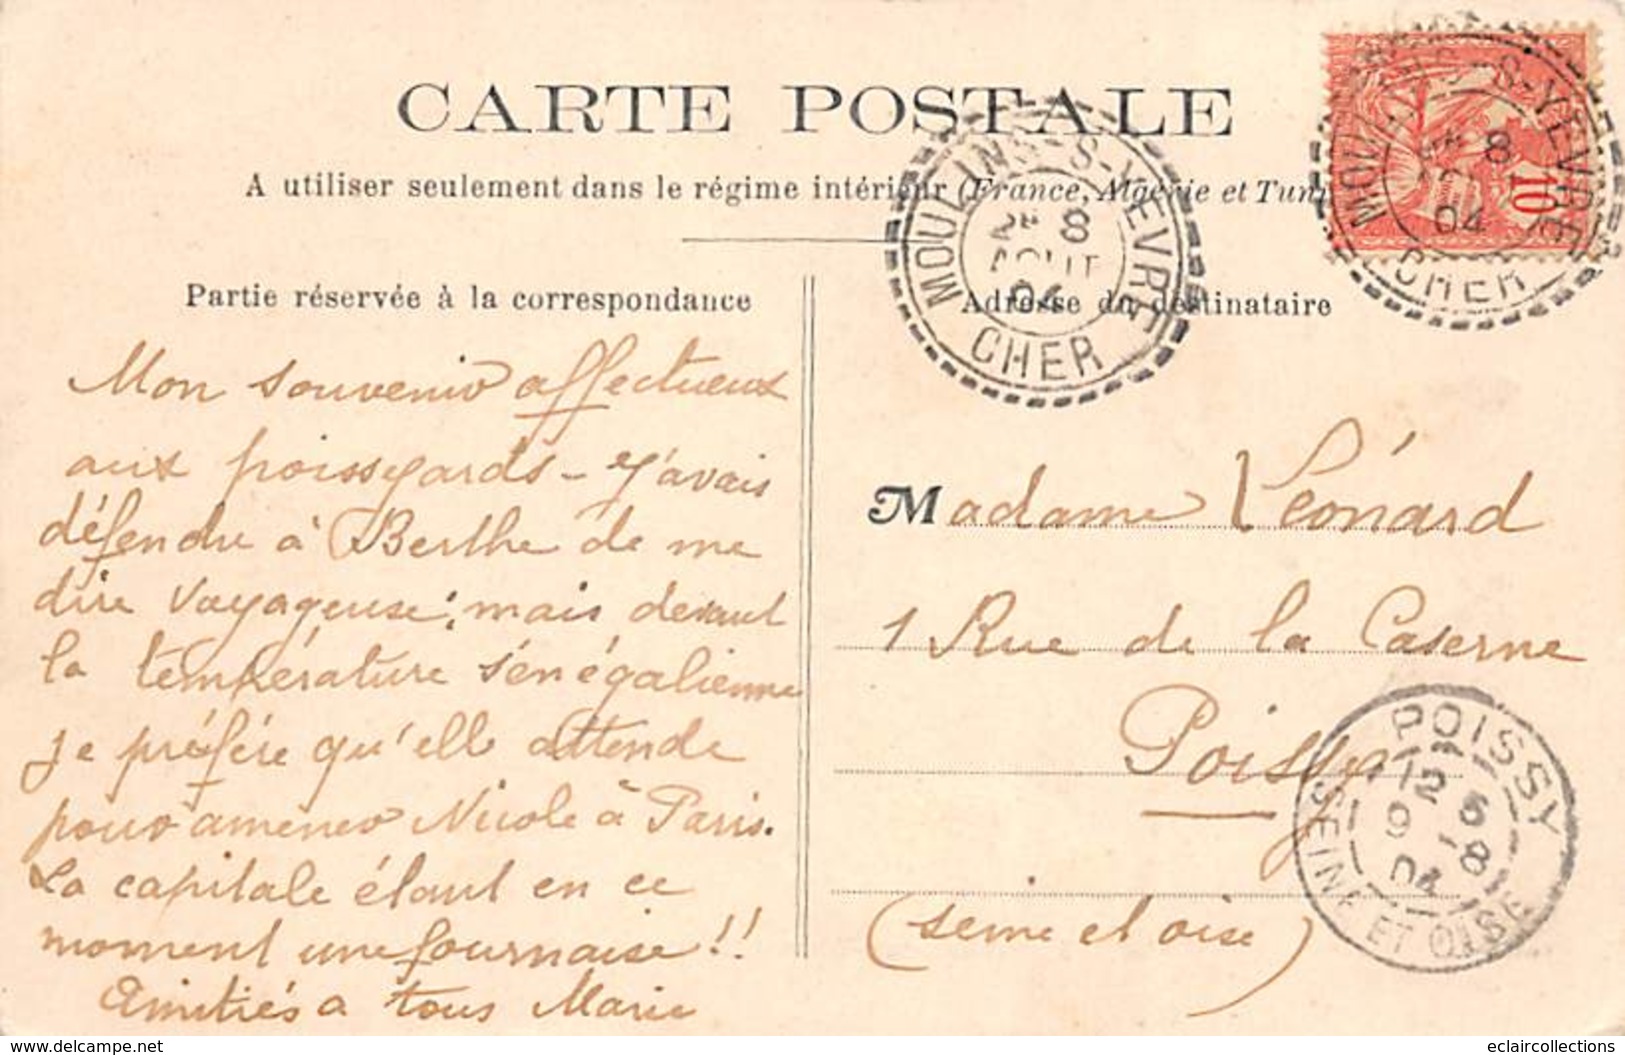 CARTE POSTALE
A utiliser seulement dans le régime intérieur (France, Algérie et Tuni
Partie réservée à la correspondance
Adresse du destinataire
Mon souvenir affectueux
aux poissyards - J'avais
défendu à Berthe de me
dire voyageuse; mais devant
la température sénégalienne
je préfère qu'elle attende
pour amener Nicole à Paris.
La capitale étant en ce
moment une fournaise!!
Amitiés à tous Marie
Madame Léonard
1 Rue de la Caserne
Poissy
(Seine et Oise)
MOULINS-S-YEVRE
8
AOUT
04
CHER
MOULINS-S-YEVRE
8
04
CHER
10
POISSY
12
9 8
04
SEINE ET OISE
www.delcampe.net
eclaircollections